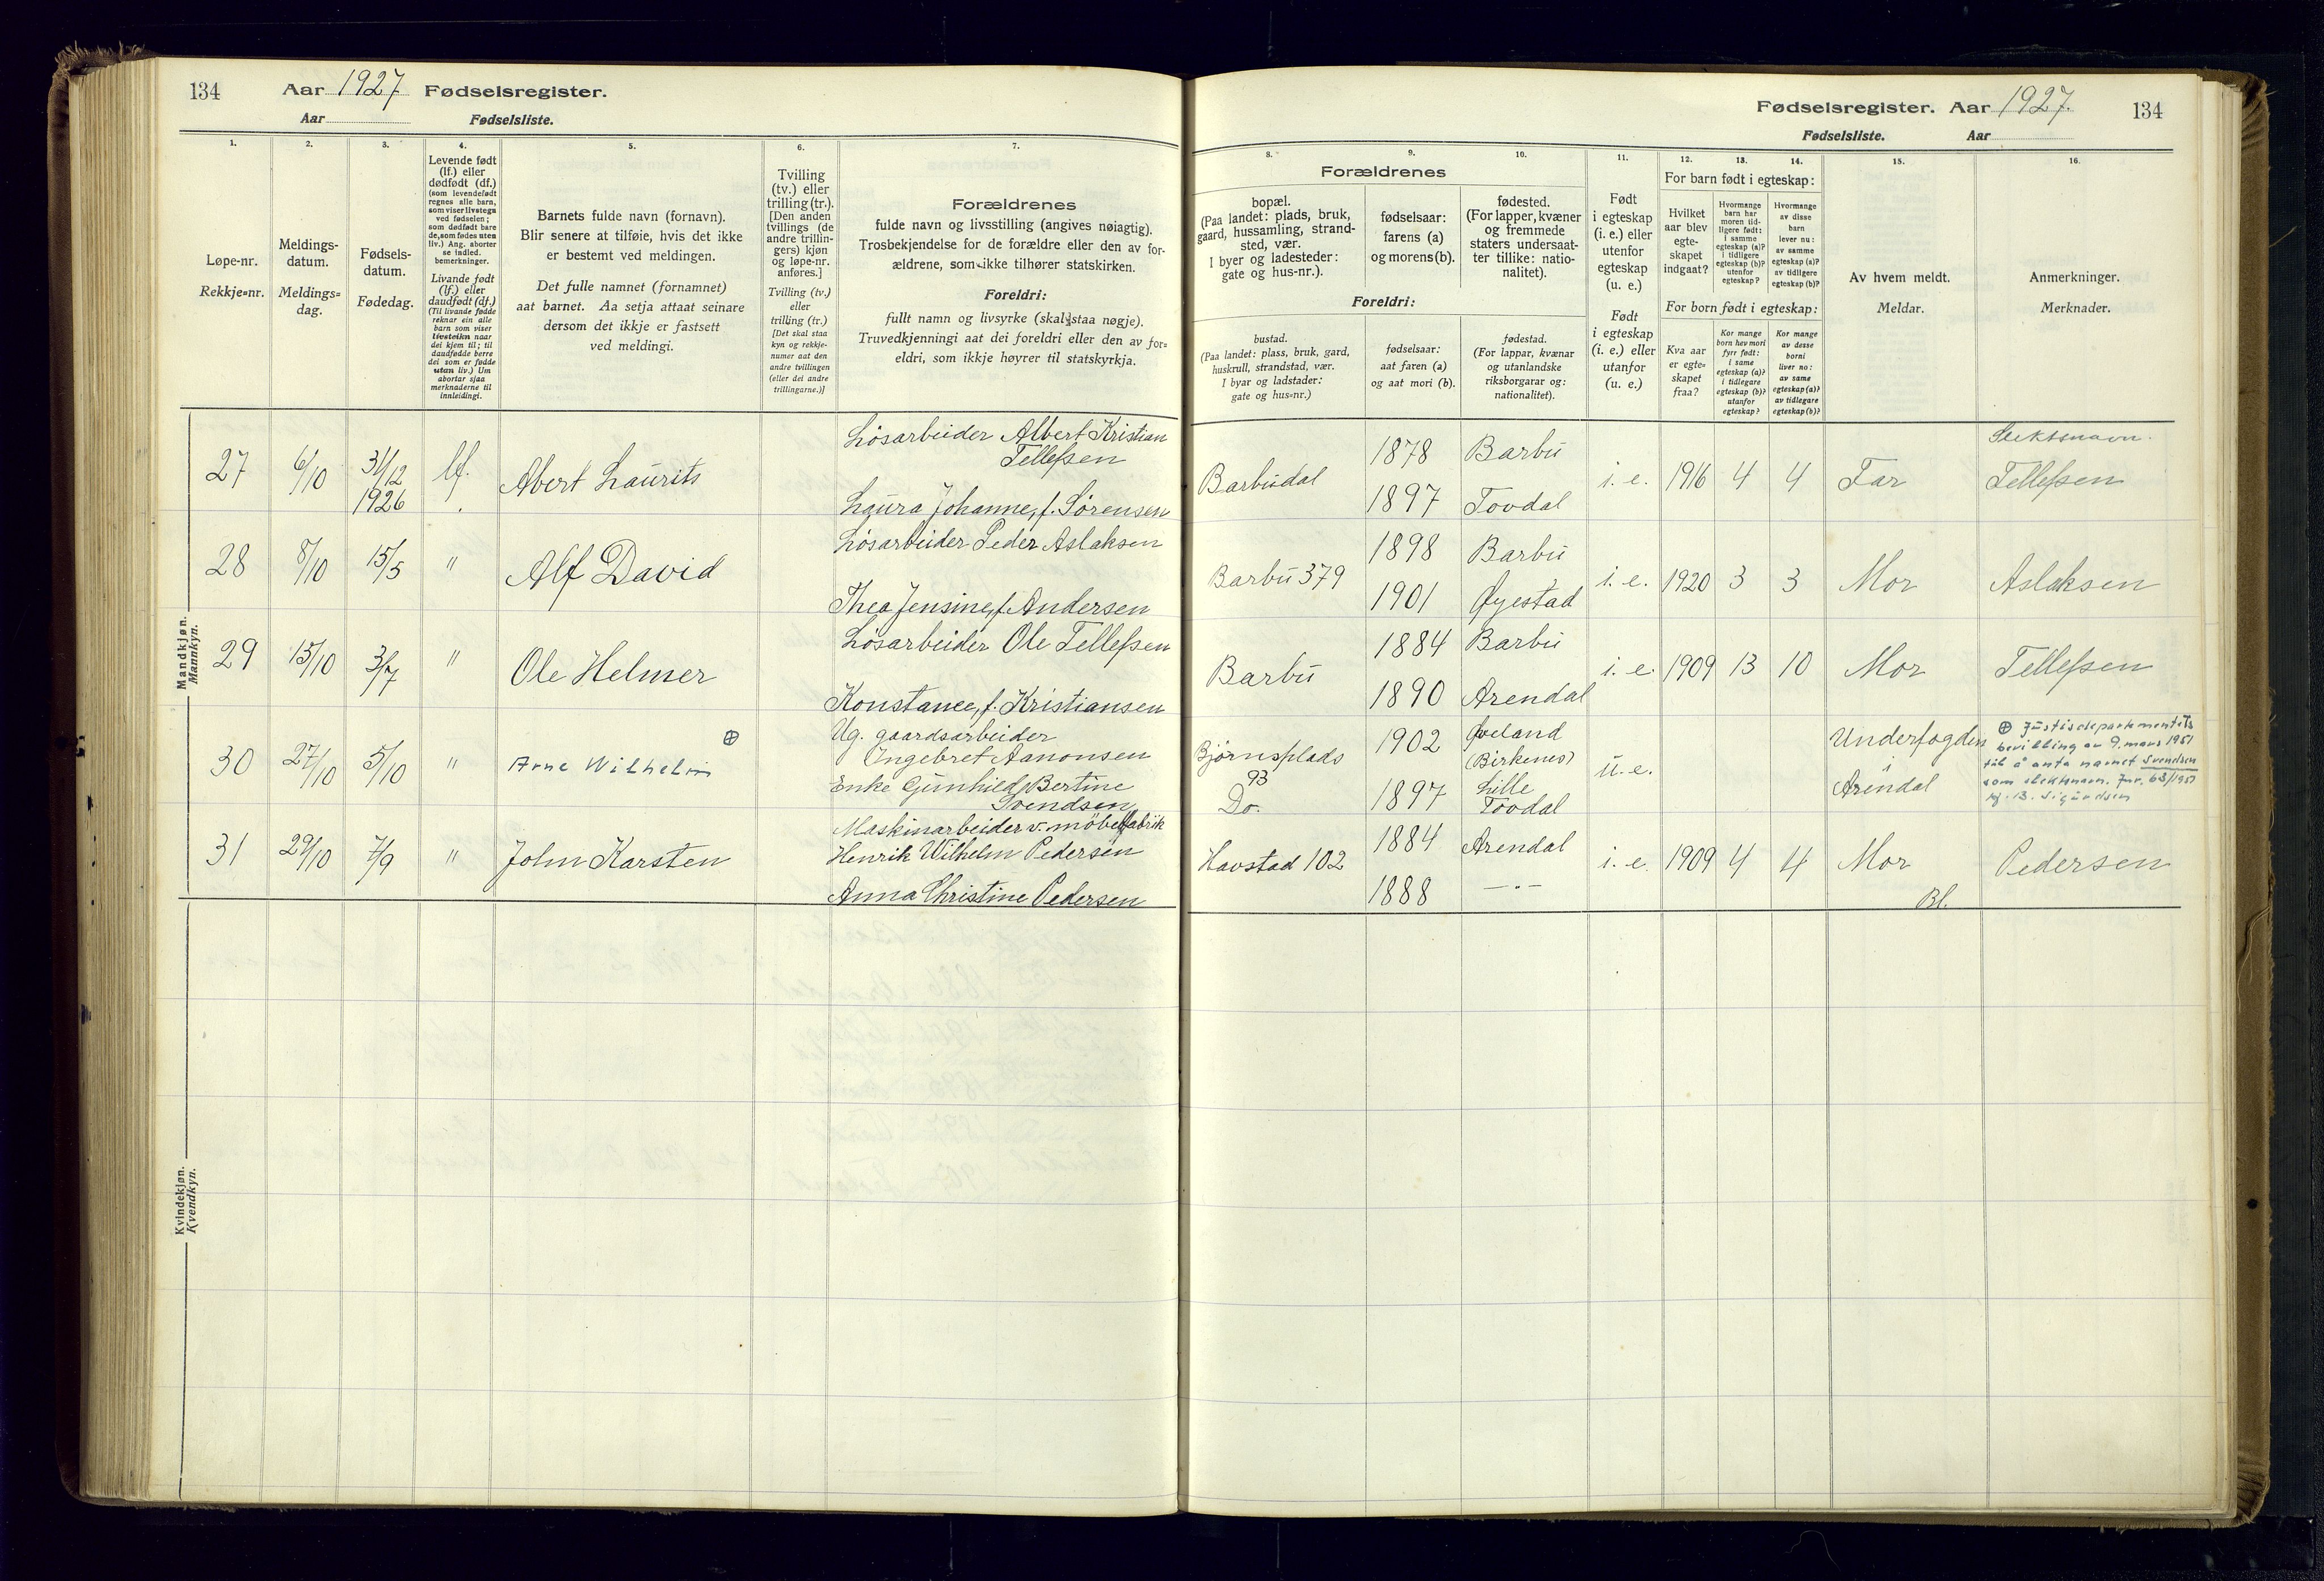 134 Aar 1927 Fødselsregister.
Aar Fødselsliste.
1. 2. 3. 4. 5. 6. 7.
Løpe-nr.
Rekkje-nr.
Meldings-
datum.
Meldings-
dag.
Fødsels-
datum.
Fødedag.
Levende født
(lf.) eller
dødfødt (df.)
(som levendefødt
regnes alle barn,
som viser livstegn
ved fødselen;
som dødfødt bare
de, som fødes uten
liv.) Ang. aborter
se indled.
bemerkninger.
Livande født
(lf.) eller
daudfødt (df.)
(Til livande fødde
reknar ein alle
born som viser
livsteikn naar
dei kjem til; til
daudfødde berre
dei som er fødde
utan liv.) Um
abortar sjaa
merknaderne til
innleidingi.
Barnets fulde navn (fornavn).
Blir senere at tilføie, hvis det ikke
er bestemt ved meldingen.
Det fulle namnet (fornamnet)
aat barnet. Aa setja attaat seinare
dersom det ikkje er fastsett
ved meldingi.
Tvilling
(tv.) eller
trilling (tr.).
[Den anden
tvillings (de
andre trillin-
gers) kjøn
og løpe-nr.
anføres.]
Tvilling (tv.)
eller
trilling (tr.)
[Det skal staa
kyn og rekkje-
numer aat den
andre tvillingen
(eller dei andre
trillingarne.)]
Forældrenes
fulde navn og livsstilling (angives nøiagtig).
Trosbekjendelse for de forældre eller den av for-
ældrene, som ikke tilhører statskirken.
Foreldri:
fullt namn og livsyrke (skal staa nøgje).
Truvedkjenningi aat dei foreldri eller den av for=
eldri, som ikkje høyrer til statskyrkja.
Mandkjøn.
Mannkyn.
27 6/10 31/12 1926 lf. Abert Laurits
Løsarbeider Albert Kristian
Tellefsen
Laura Johanne, f. Sørensen
28 8/10 15/5 " Alf David
Løsarbeider Peder Aslaksen
Thea Jensine, f. Andersen
29 15/10 3/7 " Ole Helmer
Løsarbeider Ole Tellefsen
Konstance, f. Kristiansen
30 27/10 5/10 " Arne Wilhelm ⊕
Ug. gaardsarbeider
Ingebret Aanonsen
Enke Gunhild Bertine
Svendsen
31 29/10 7/9 " John Karsten
Maskinarbeider v. möbelfabrik
Henrik Wilhelm Pedersen
Anna Christine Pedersen
Kvindekjøn.
Kvendkyn.
Fødselsregister. Aar 1927. 134
Fødselsliste. Aar
8. 9. 10. 11. 12. 13. 14. 15. 16.
Forældrenes
bopæl.
(Paa landet: plads, bruk,
gaard, hussamling, strand-
sted, vær.
I byer og ladesteder:
gate og hus-nr.).
fødselsaar:
farens (a)
og morens (b).
fødested.
(For lapper, kvæner
og fremmede
staters undersaat-
ter tillike: natio-
nalitet).
Foreldri:
bustad.
(Paa landet: plass, bruk, gard,
huskrull, strandstad, vær.
I byar og ladstader:
gate og hus=nr.)
fødselsaar:
aat faren (a)
og aat mori (b).
fødestad.
(For lappar, kvænar
og utanlandske
riksborgarar og:
nationalitet).
Født
i egteskap
(i. e.) eller
utenfor
egteskap
(u. e.)
Født
i egteskap
(i. e.) eller
utanfor
(u. e.)
For barn født i egteskap:
Hvilket
aar blev
egte-
skapet
indgaat?
Hvormange
barn har
moren tid-
ligere født:
i samme
egteskap (a)?
i tidligere
egteskap (b)?
utenfor
egteskap?
Hvormange
av disse
barn
lever nu:
av samme
egteskap (a)?
av tidligere
egteskap (b)?
For born født i egteskap:
Kva aar
er egte=
skapet
fraa?
Kor mange
born hev mori
fyrr født:
i same
egteskap (a)?
i tidlegare
egteskap (b)?
utanfor
egteskap?
Kor mange
av desse
borni
liver no:
av same
egteskap (a)?
av tidlegare
egteskap (b)?
Av hvem meldt.
Meldar.
Anmerkninger.
Merknader.
Slektsnavn.
Barbudal 1878 Barbu
1897 Tovdal
i. e. 1916 4 4 Far Tellefsen
Barbu 379 1898 Barbu
1901 Øyestad
i. e. 1920 3 3 Mor Aslaksen
Barbu 1884 Barbu
1890 Arendal
i. e. 1909 13 10 Mor Tellefsen
Bjørnsplads
93
Do.
1902 Øveland
(Birkenes)
1897 Lille
Tovdal
u. e.
Underfogden
i
Arendal
⊕ Justisdepartementets
bevilling av 9. mars 1951
til å anta navnet Svendsen
som slektsnavn. Jnr. 63/1951
kj. B. Sigurdsen
Havstad 102 1884 Arendal
1888 —"—
i. e. 1909 4 4 Mor Pedersen
Bl.